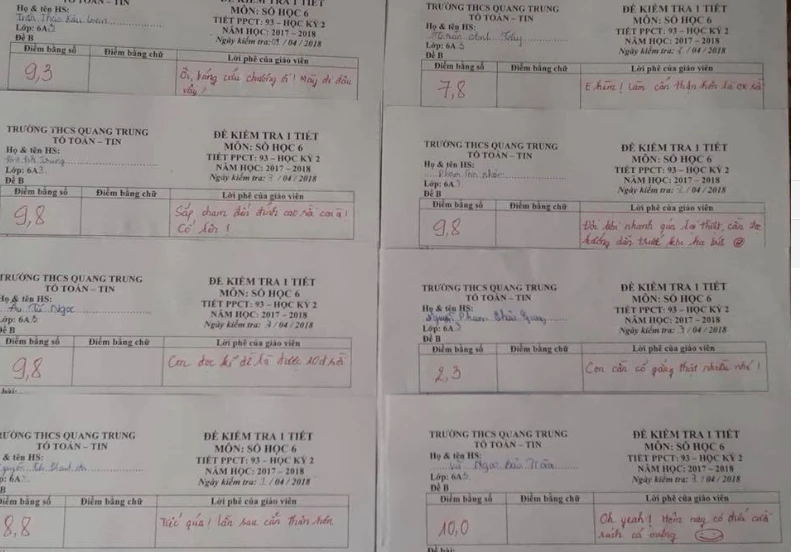 ĐỀ KIỂM TRA 1 TIẾT
TỔ TOÁN – TIN
Họ & tên HS:
MÔN: SỐ HỌC 6
Lớp: 6A
TIẾT PPCT: 93 – HỌC KỲ 2
Đề B
NĂM HỌC: 2017 – 2018
Ngày kiểm tra: /04/2018
Điểm bằng số Điểm bằng chữ Lời phê của giáo viên
9,3
Ôi, bảng cửu chương ơi! Mày đi đâu
vậy?
TRƯỜNG THCS QUANG TRUNG ĐỀ KIỂM TRA 1 TIẾT
TỔ TOÁN – TIN MÔN: SỐ HỌC 6
Họ & tên HS: TIẾT PPCT: 93 – HỌC KỲ 2
Trung NĂM HỌC: 2017 – 2018
Lớp: 6A3 Ngày kiểm tra: 3/04/2018
Đề B
Điểm bằng số Điểm bằng chữ Lời phê của giáo viên
9,8
Sắp chạm đến đỉnh cao rồi
Cố lên!
TRƯỜNG THCS QUANG TRUNG ĐỀ KIỂM TRA 1 TIẾT
TỔ TOÁN – TIN MÔN: SỐ HỌC 6
Họ & tên HS: TIẾT PPCT: 93 – HỌC KỲ 2
Tú Ngọc NĂM HỌC: 2017 – 2018
Lớp: 6A3 Ngày kiểm tra: 3/04/2018
Đề B
Điểm bằng số Điểm bằng chữ Lời phê của giáo viên
9,8
Con đọc kỹ đề là được 10đ rồi
TRƯỜNG THCS QUANG TRUNG ĐỀ KIỂM TRA 1 TIẾT
TỔ TOÁN – TIN MÔN: SỐ HỌC 6
& tên HS: TIẾT PPCT: 93 – HỌC KỲ 2
NĂM HỌC: 2017 – 2018
Ngày kiểm tra: /04/2018
Điểm bằng số Điểm bằng chữ Lời phê của giáo viên
8,8
Tiếc quá! Lần sau cẩn thận hơn
TỔ TOÁN – TIN ĐỀ KIỂM TRA 1 TIẾT
Họ & tên HS: MÔN: SỐ HỌC 6
TIẾT PPCT: 93 – HỌC KỲ 2
Lớp: 6A NĂM HỌC: 2017 – 2018
Đề B Ngày kiểm tra: /04/2018
Điểm bằng số Điểm bằng chữ Lời phê của giáo viên
7,8
cẩn thận hơn là ok rồi
TRƯỜNG THCS QUANG TRUNG ĐỀ KIỂM TRA 1 TIẾT
TỔ TOÁN – TIN MÔN: SỐ HỌC 6
Họ & tên HS: TIẾT PPCT: 93 – HỌC KỲ 2
NĂM HỌC: 2017 – 2018
Lớp: 6A Ngày kiểm tra: /04/2018
Đề B
Điểm bằng số Điểm bằng chữ Lời phê của giáo viên
9,8
Đôi khi nhanh quá
trước khi hạ bút
TRƯỜNG THCS QUANG TRUNG ĐỀ KIỂM TRA 1 TIẾT
TỔ TOÁN – TIN MÔN: SỐ HỌC 6
Họ & tên HS: TIẾT PPCT: 93 – HỌC KỲ 2
Nguyễn Phạm Quang NĂM HỌC: 2017 – 2018
Lớp: 6A Ngày kiểm tra: 3/04/2018
Đề B
Điểm bằng số Điểm bằng chữ Lời phê của giáo viên
2,3
Con cần cố gắng thật nhiều nhé!
TRƯỜNG THCS QUANG TRUNG ĐỀ KIỂM TRA 1 TIẾT
TỔ TOÁN – TIN MÔN: SỐ HỌC 6
Họ & tên HS: TIẾT PPCT: 93 – HỌC KỲ 2
Vũ Ngọc Bảo NĂM HỌC: 2017 – 2018
Lớp: 6A Ngày kiểm tra: 3/04/2018
Đề B
Điểm bằng số Điểm bằng chữ Lời phê của giáo viên
10,0
Oh yeah! Hôm nay có thể cười
rách cả miệng